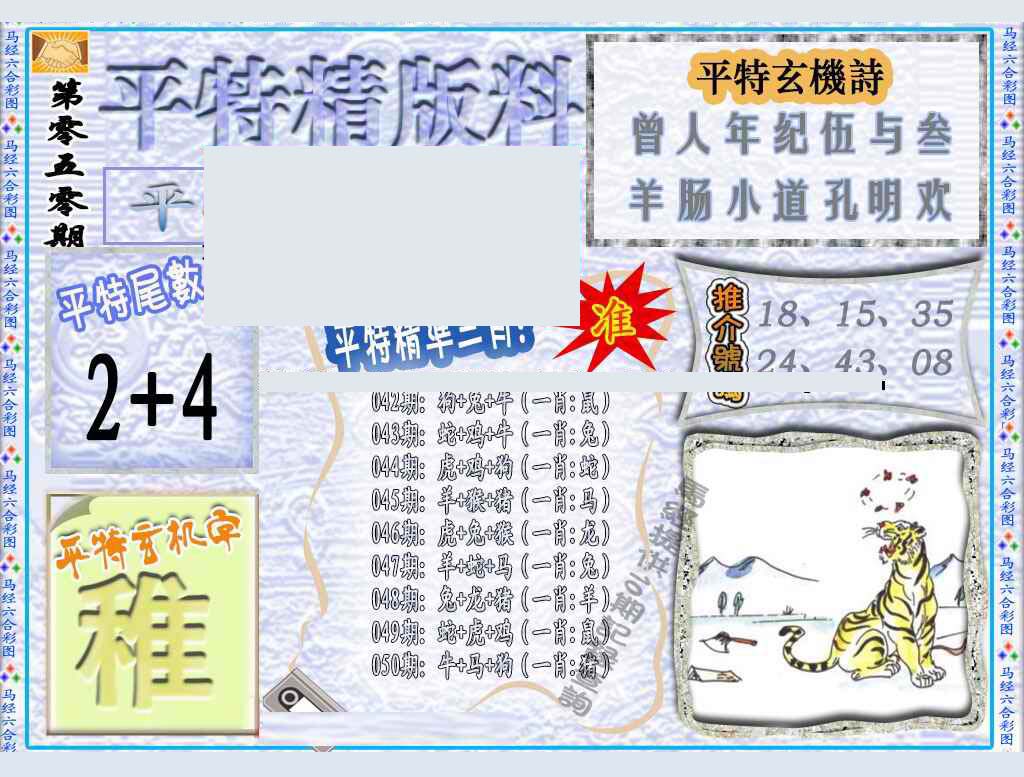 马经六合彩图
第零五零期
平特精版料
平
平特玄機詩
曾人年纪伍与叁
羊肠小道孔明欢
平特尾數
2+4
准
推介號碼
18、15、35
24、43、08
042期：狗+兔+牛（一肖:鼠）
043期：蛇+鸡+牛（一肖:兔）
044期：虎+鸡+狗（一肖:蛇）
045期：羊+猴+猪（一肖:马）
046期：虎+兔+猴（一肖:龙）
047期：羊+蛇+马（一肖:兔）
048期：兔+龙+猪（一肖:羊）
049期：蛇+虎+鸡（一肖:鼠）
050期：牛+马+狗（一肖:猪）
平特玄机字
稚
马经六合彩图